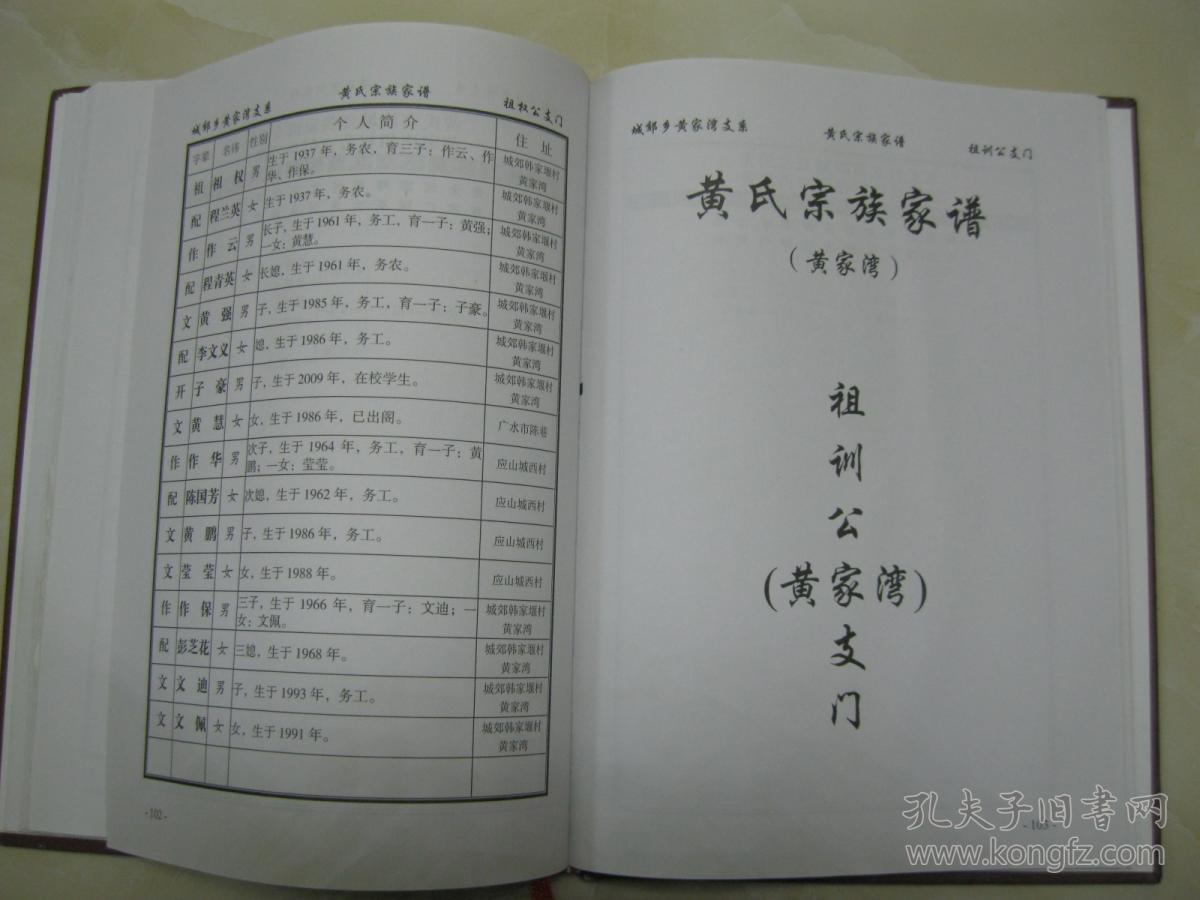 城郊乡黄家湾支系 黄氏宗族家谱 祖权公支门
字辈 名讳 性别 个人简介 住址
祖 祖权 男 生于1937年,务农,育三子:作云、作华、作保。 城郊韩家堰村黄家湾
配 程兰英 女 生于1937年,务农。 城郊韩家堰村黄家湾
作 作云 男 长子,生于1961年,务工,育一子:黄强;一女:黄慧。 城郊韩家堰村黄家湾
配 程青英 女 长媳,生于1961年,务农。 城郊韩家堰村黄家湾
文 黄强 男 子,生于1985年,务工,育一子:子豪。 城郊韩家堰村黄家湾
配 李文义 女 媳,生于1986年,务工。 城郊韩家堰村黄家湾
开 子豪 男 子,生于2009年,在校学生。 城郊韩家堰村黄家湾
文 黄慧 女 女,生于1986年,已出阁。 广水市陈巷
作 作华 男 次子,生于1964年,务工,育一子:黄鹏;一女:莹莹。 应山城西村
配 陈国芳 女 次媳,生于1962年,务工。 应山城西村
文 黄鹏 男 子,生于1986年,务工。 应山城西村
文 莹莹 女 女,生于1988年。 应山城西村
作 作保 男 三子,生于1966年,育一子:文迪;一女:文佩。 城郊韩家堰村黄家湾
配 彭芝花 女 三媳,生于1968年。 城郊韩家堰村黄家湾
文 文迪 男 子,生于1993年,务工。 城郊韩家堰村黄家湾
文 文佩 女 女,生于1991年。 城郊韩家堰村黄家湾
-102-
城郊乡黄家湾支系 黄氏宗族家谱 祖训公支门
黄氏宗族家谱
(黄家湾)
祖训公(黄家湾)支门
-103-
孔夫子旧书网
www.kongfz.com